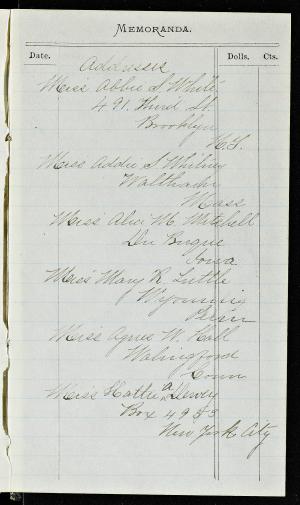 MEMORANDA.
Date. Dolls. Cts.
Addresses
Miss Abbie S. White
491. Third St.
Brooklyn
N.Y.
Miss Addie S. Whitney
Waltham
Mass
Miss Alice M. Mitchell
Du Buque
Iowa
Miss Mary R. Tuttle
Wyoming
Penn
Miss Agnes W. Hall
Walingford
Conn
Miss Hattie A. Dewey
Box 4953
New York City